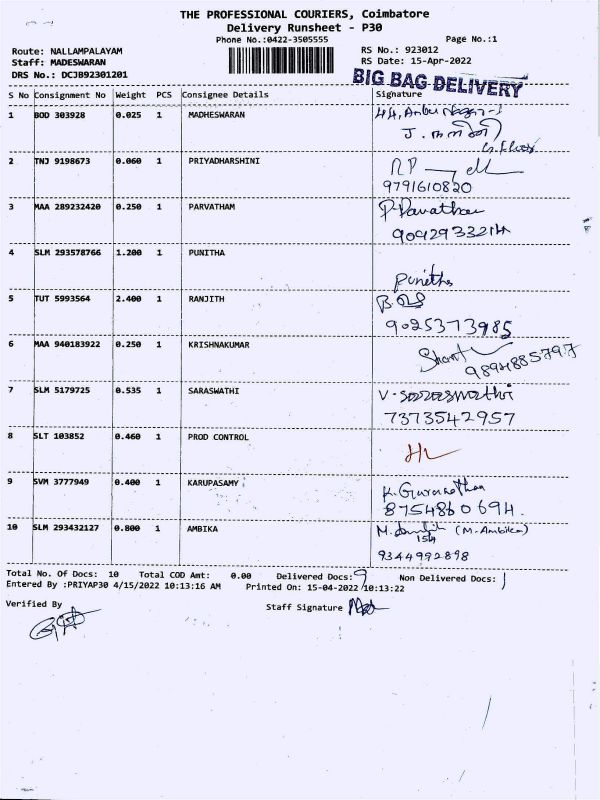 THE PROFESSIONAL COURIERS, Coimbatore
Delivery Runsheet - P30
Phone No.:0422-3505555 Page No.:1
Route: NALLAMPALAYAM RS No.: 923012
Staff: MADESWARAN RS Date: 15-Apr-2022
DRS No.: DCJB92301201 BIG BAG DELIVERY
S No Consignment No Weight PCS Consignee Details Signature
1 BOD 303928 0.025 1 MADHESWARAN 44, Anbu Nagar-1
2 TNJ 9198673 0.060 1 PRIYADHARSHINI
9791610820
3 MAA 289232420 0.250 1 PARVATHAM P. Pavatham
4 SLM 293578766 1.200 1 PUNITHA
Punitha
5 TUT 5993564 2.400 1 RANJITH
9025373985
6 MAA 940183922 0.250 1 KRISHNAKUMAR
9894885797
7 SLM 5179725 0.535 1 SARASWATHI V. Saraswathi
7373542957
8 SLT 103852 0.460 1 PROD CONTROL
9 SVM 3777949 0.400 1 KARUPASAMY K. Gurunathan
8754860694.
10 SLM 293432127 0.800 1 AMBIKA (M. Ambika)
9344992898
Total No. Of Docs: 10 Total COD Amt: 0.00 Delivered Docs: 9 Non Delivered Docs: 1
Entered By :PRIYAP30 4/15/2022 10:13:16 AM Printed On: 15-04-2022 10:13:22
Verified By Staff Signature